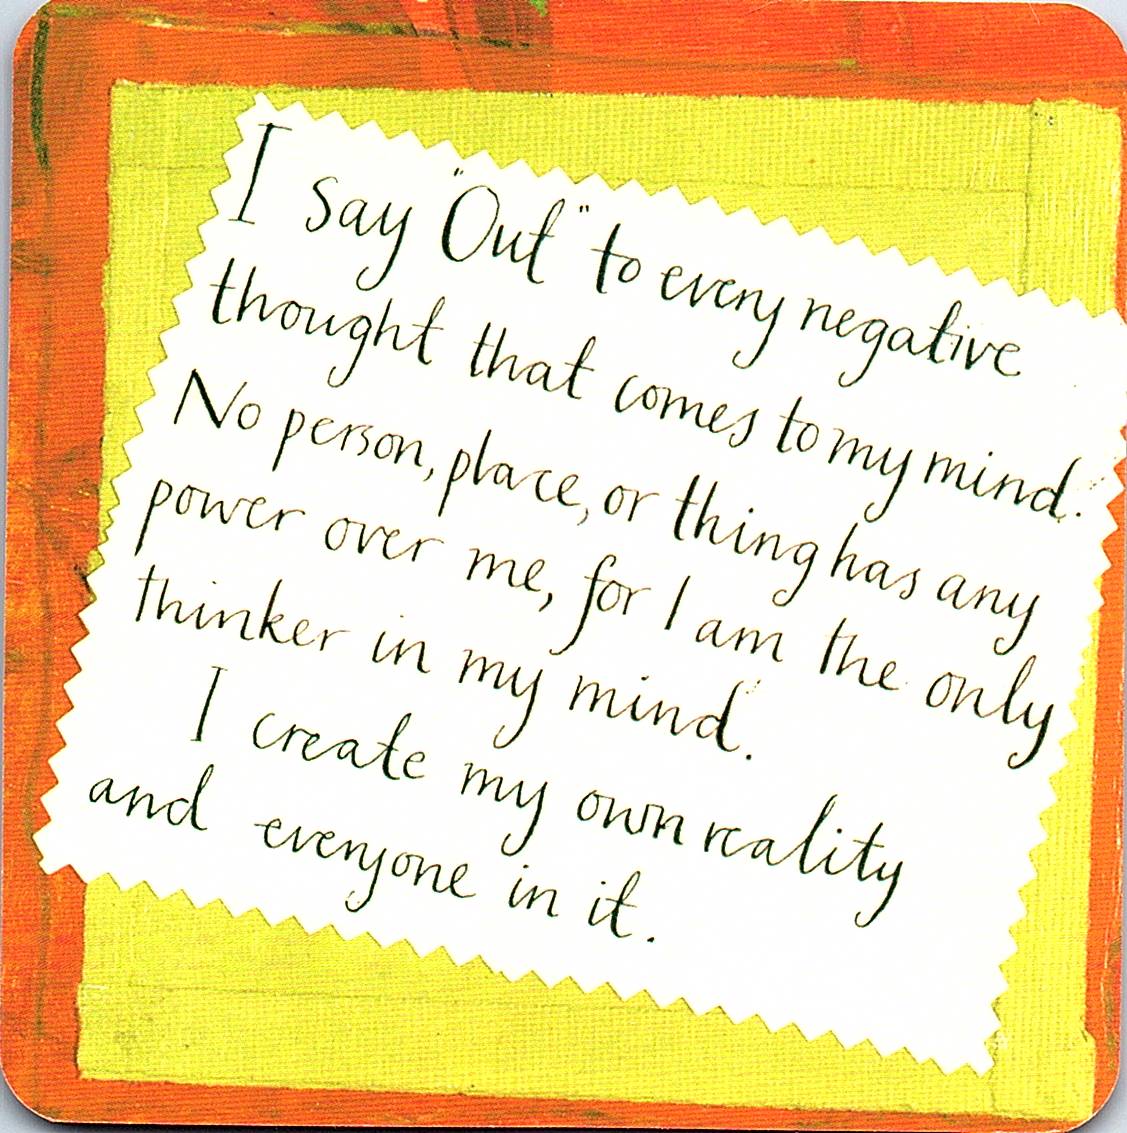 I say "Out" to every negative
thought that comes to my mind.
No person, place, or thing has any
power over me, for I am the only
thinker in my mind.
I create my own reality
and everyone in it.